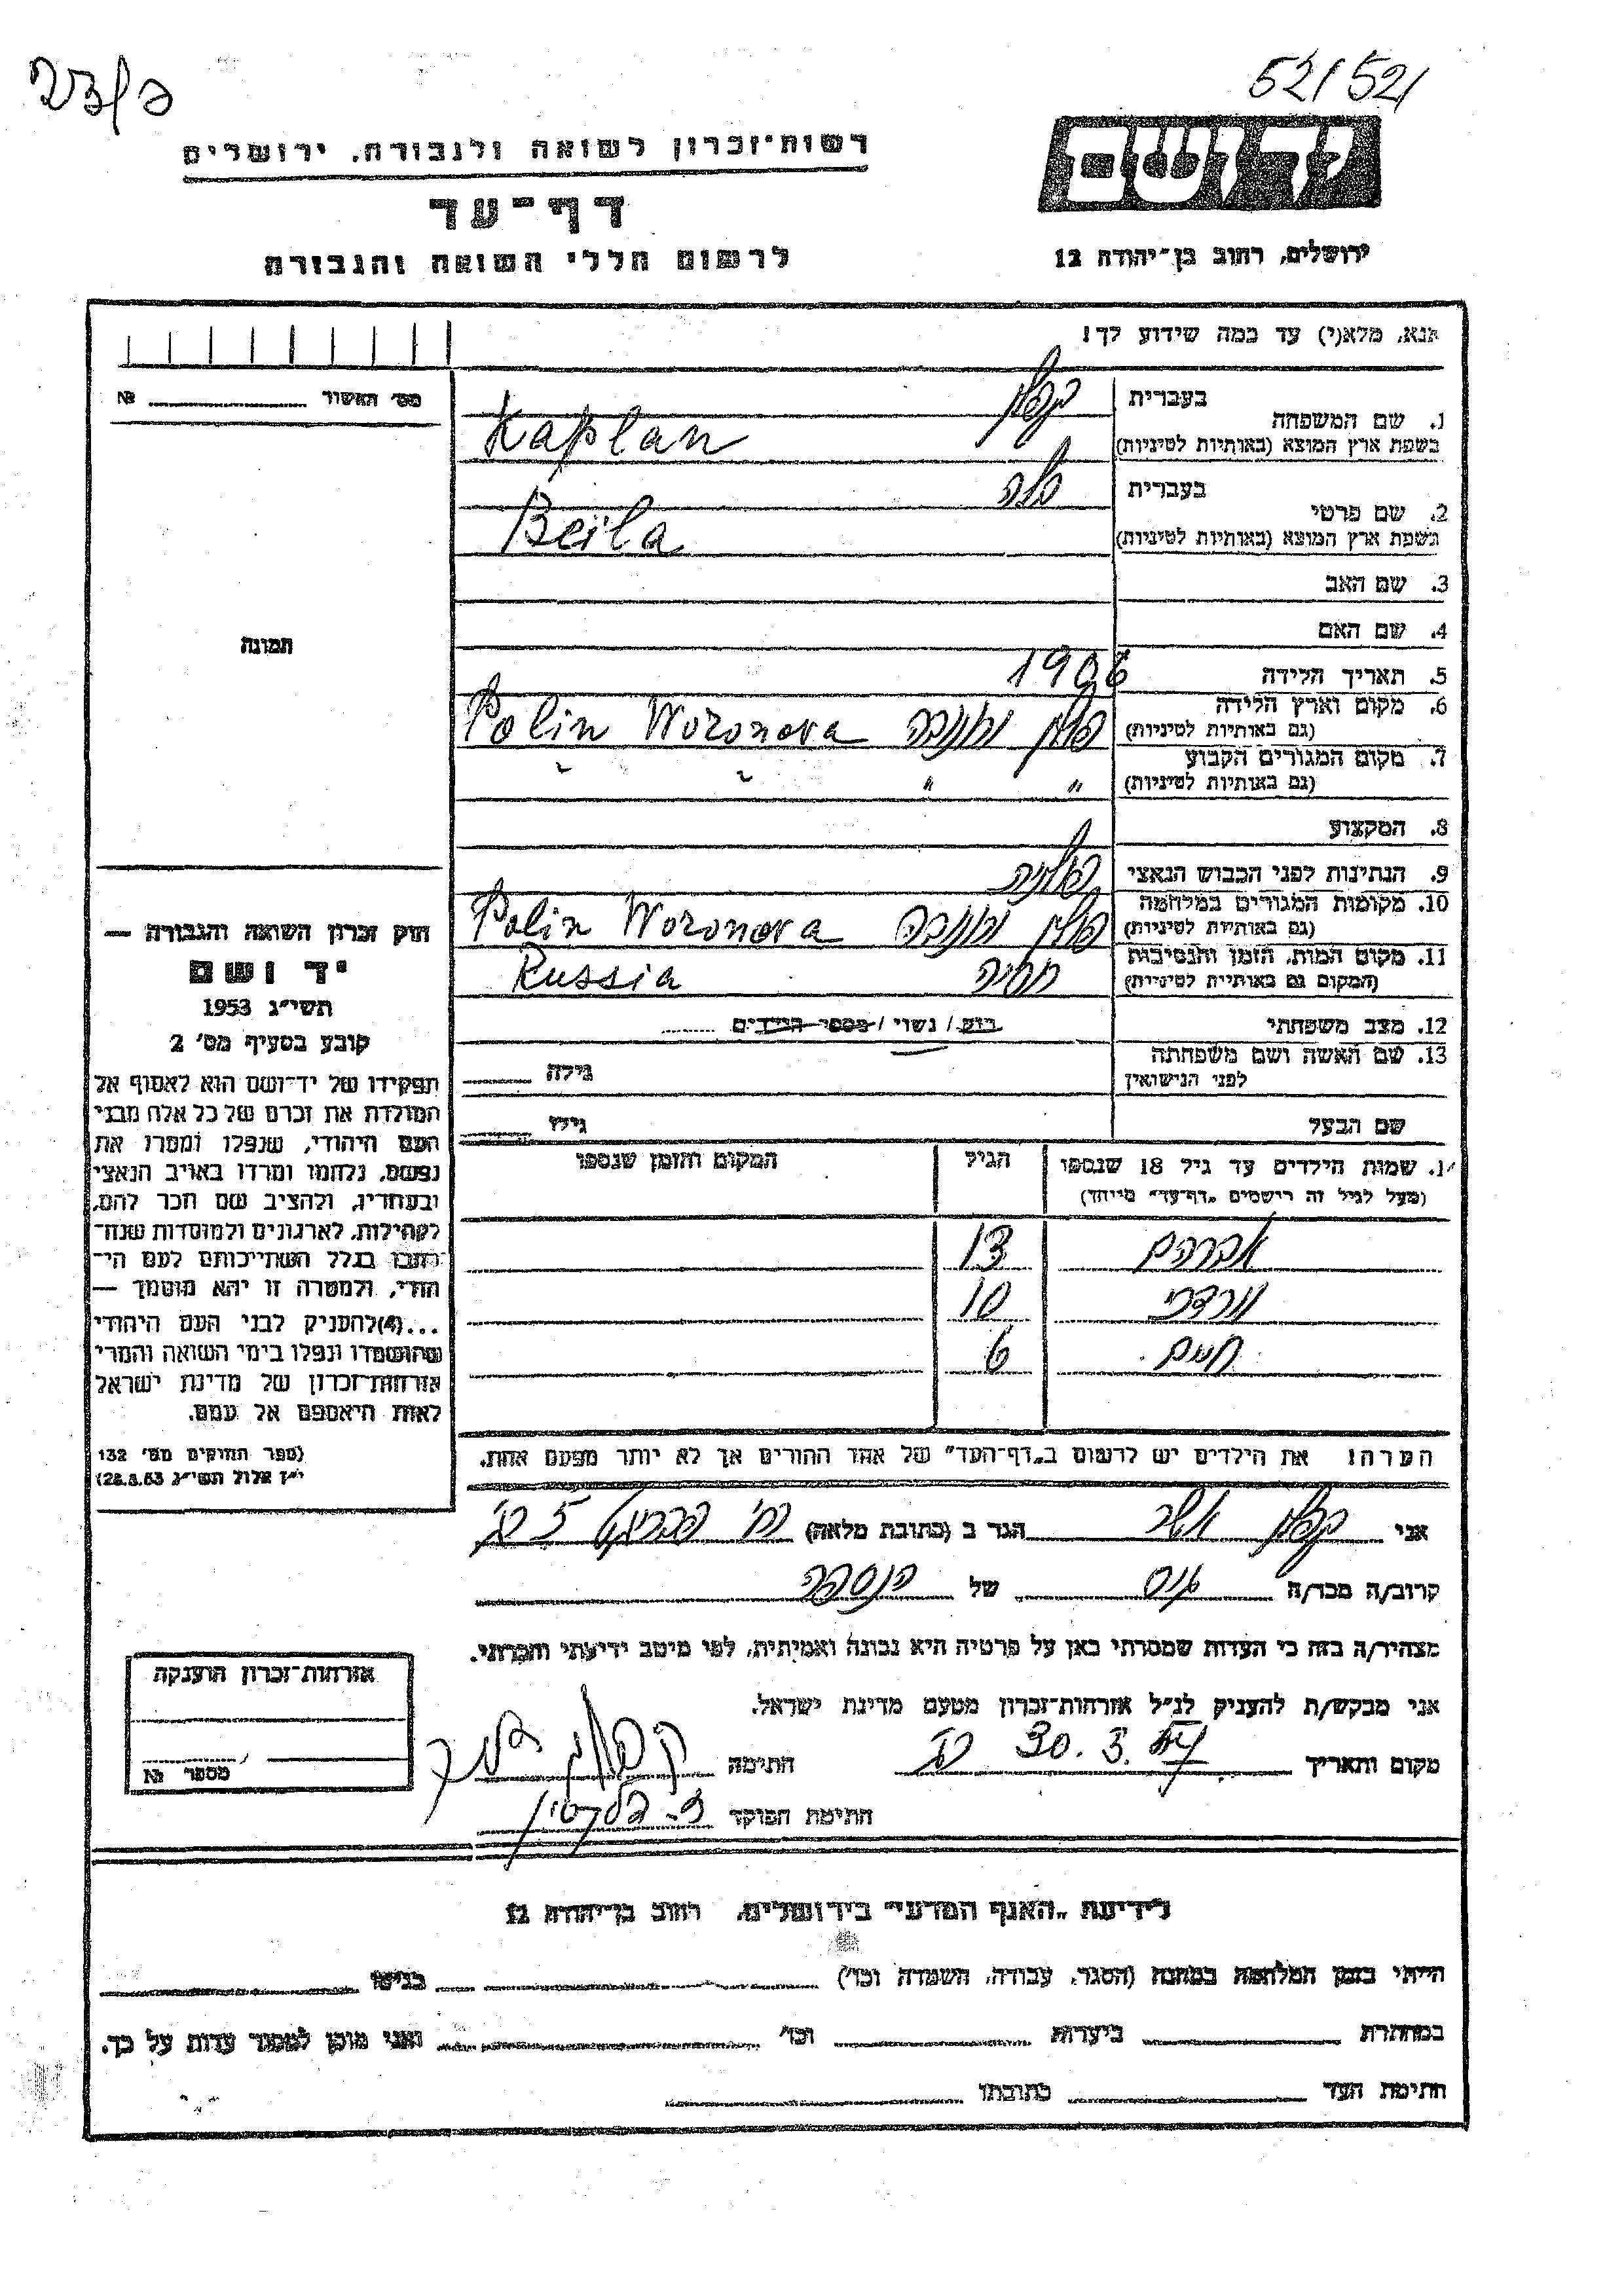 52/521
רשות־זכרון לשואה ולגבורה, ירושלים
דף־עד
לרשום חללי השואה והגבורה
יד ושם
ירושלים, רחוב בן־יהודה 12
אנא, מלא(י) עד כמה שידוע לך!
מס׳ האשור № 
1. שם המשפחה
בעברית קפלן
בשפת ארץ המוצא (באותיות לטיניות) Kaplan
2. שם פרטי
בעברית בלה
בשפת ארץ המוצא (באותיות לטיניות) Beila
3. שם האב
4. שם האם
תמונה
5. תאריך הלידה 1906
6. מקום וארץ הלידה
(גם באותיות לטיניות) פולין וורונובה Polin Woronova
7. מקום המגורים הקבוע
(גם באותיות לטיניות) " " " "
8. המקצוע
9. הנתינות לפני הכבוש הנאצי פולניה
10. מקומות המגורים במלחמה
(גם באותיות לטיניות) פולין וורונובה Polin Woronova
11. מקום המות, הזמן והנסיבות
(המקום גם באותיות לטיניות) רוסיה Russia
12. מצב משפחתי רווק / נשוי / מספר הילדים
13. שם האשה ושם משפחתה
לפני הנישואין גילה
שם הבעל גילו
14. שמות הילדים עד גיל 18 שנספו הגיל המקום והזמן שנספו
(מעל לגיל זה רישמים „דף־עד" מיוחד)
אברהם 13
מרדכי 10
נחום 6
הערה! את הילדים יש לרשום ב„דף־העד" של אחד ההורים אך לא יותר מפעם אחת.
חוק זכרון השואה והגבורה —
יד ושם
תשי״ג 1953
קובע בסעיף מס׳ 2
תפקידו של יד־ושם הוא לאסוף אל
המולדת את זכרם של כל אלה מבני
העם היהודי, שנפלו ומסרו את
נפשם, נלחמו ומרדו באויב הנאצי
ובעוזריו, ולהציב שם וזכר להם,
לקהילות, לארגונים ולמוסדות שנח־
רבו בגלל השתייכותם לעם הי־
הודי, ולמטרה זו יהא מוסמך —
...(4) להעניק לבני העם היהודי
שהושמדו ונפלו בימי השואה והמרי
אזרחות־זכרון של מדינת ישראל
לאות היאספם אל עמם.
(ספר החוקים מס׳ 132
י״ז אלול תשי״ג 28.8.53)
אני קפלן אשר הגר ב (כתובת מלאה)
קרוב/ה מכר/ה של
מצהיר/ה בזה כי העדות שמסרתי כאן על פרטיה היא נכונה ואמיתית, לפי מיטב ידיעתי והכרתי.
אני מבקש/ת להעניק לנ״ל אזרחות־זכרון מטעם מדינת ישראל.
מקום ותאריך 30.3.57 חתימה קפלן אשר
חתימת הפוקד
אזרחות־זכרון הוענקה
מספר №
לידיעת „האגף המדעי" בירושלים, רחוב בן־יהודה 12
הייתי בזמן המלחמה במחנה (הסגר, עבודה, השמדה וכו׳) בגיטו
במחתרת ביערות וכו׳ ואני מוכן למסור עדות על כך.
חתימת העד כתובתו